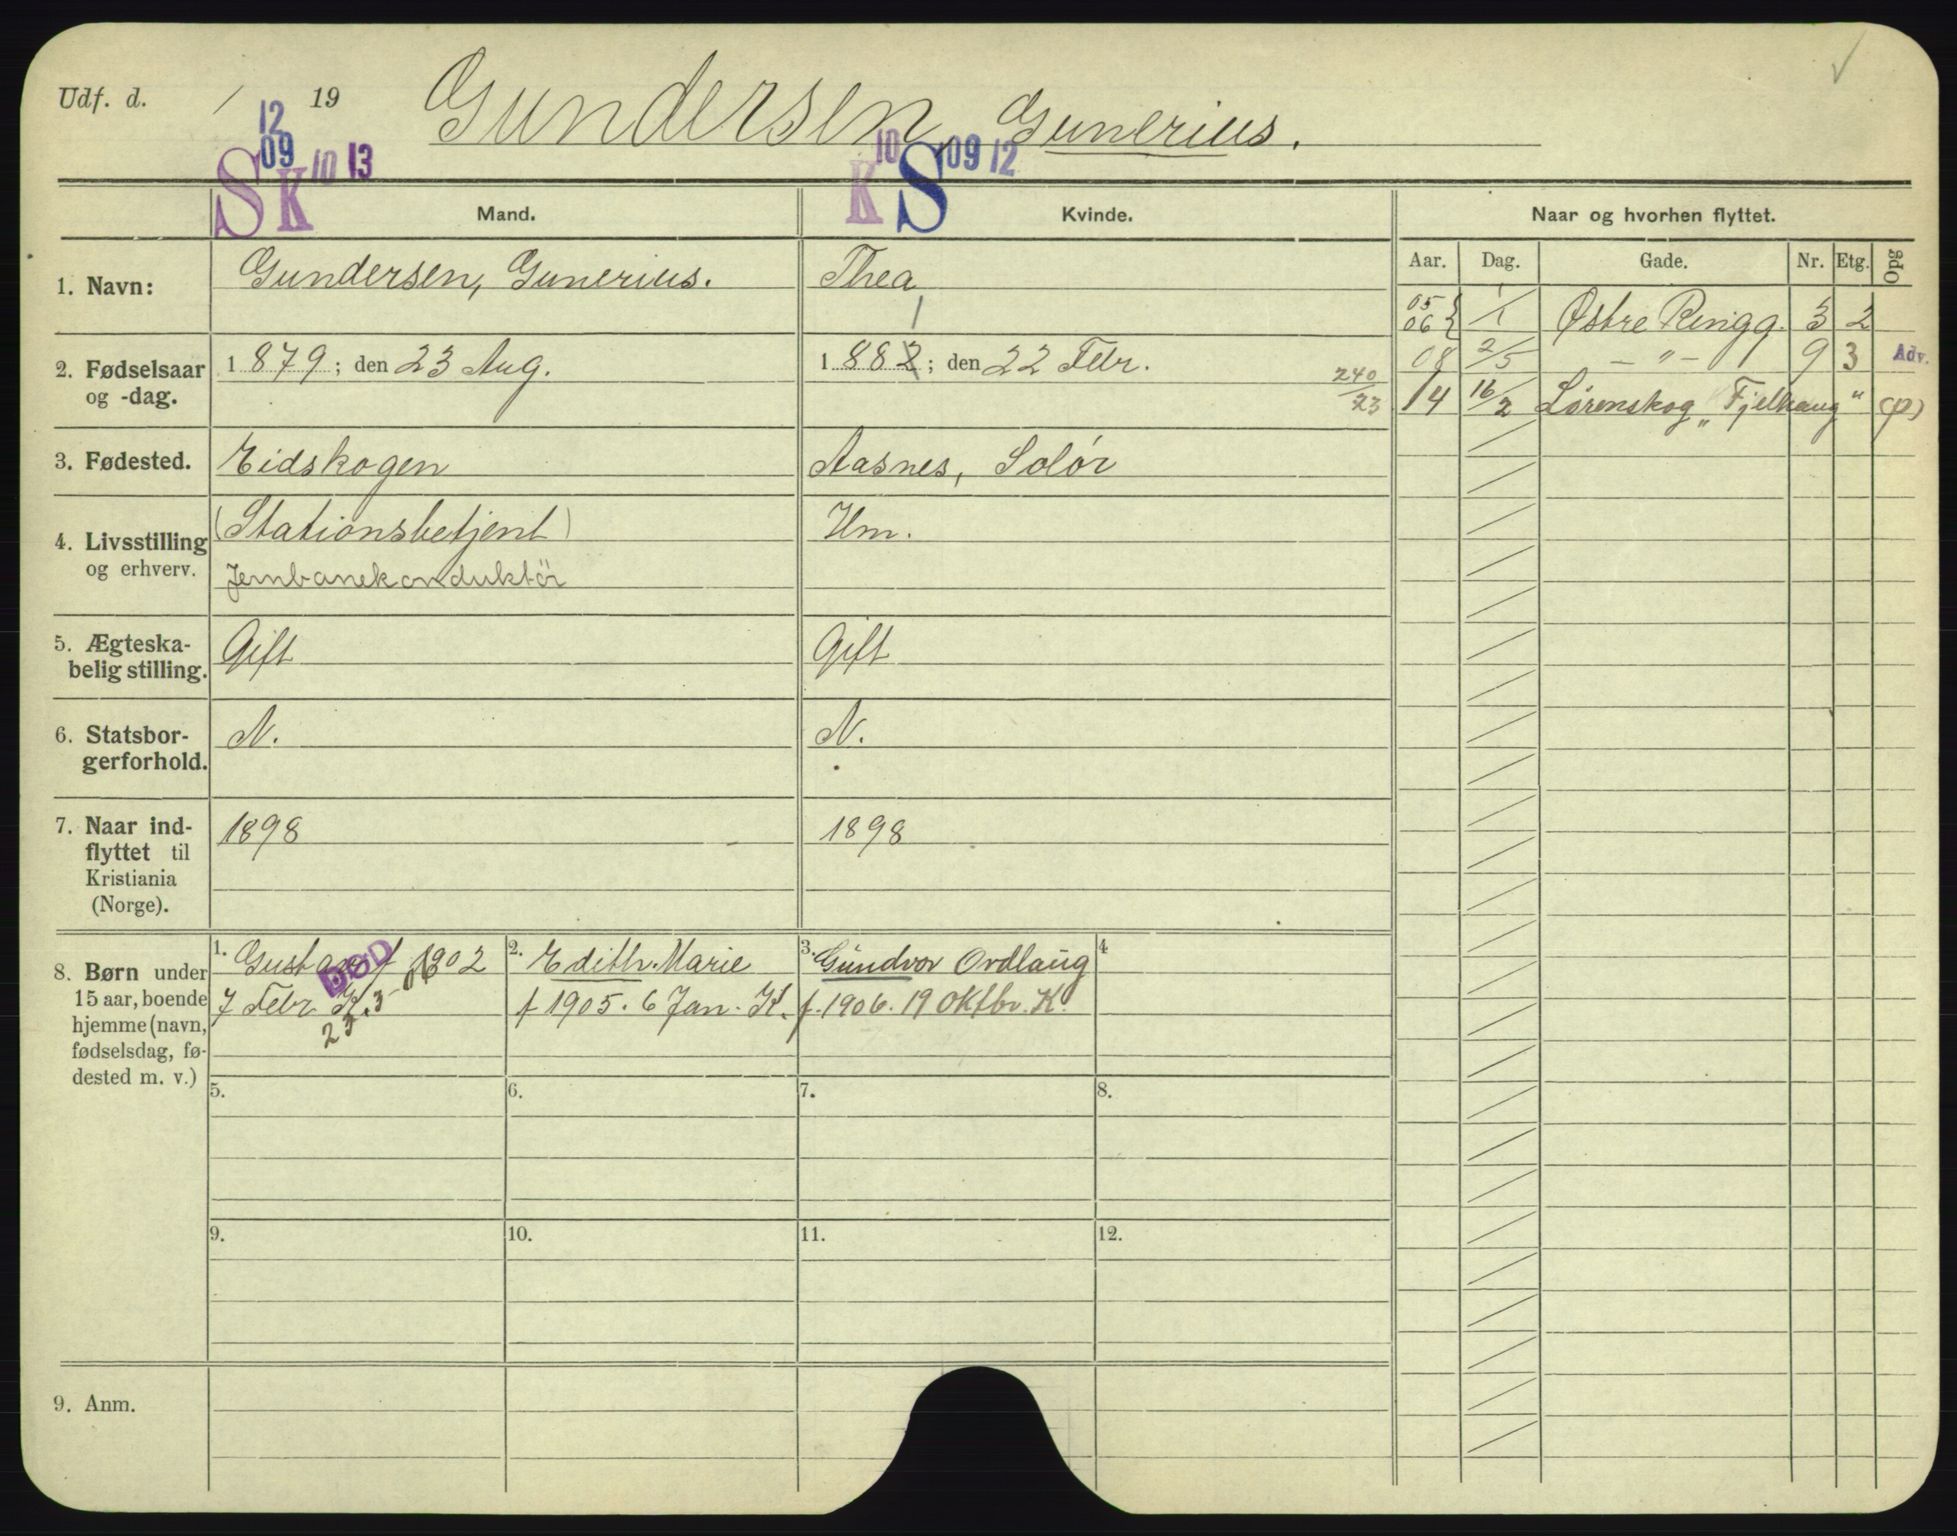 Udf. d. / 19 Gundersen, Gunerius.
12
09 10 13 10 09 12
S K K S
Mand. Kvinde. Naar og hvorhen flyttet.
Aar. Dag. Gade. Nr. Etg. Opg
1. Navn: Gundersen, Gunerius. Thea
1
05
06 } 1/1 Østre Ringg. 3 2
2. Fødselsaar
og -dag.
1 879 ; den 23 Aug. 1 882 ; den 22 Febr.
240/23
08 2/5 — " — 9 3 Adv.
14 16/2 Lørenskog „Fjelhaug" (p)
3. Fødested. Eidskogen Aasnes, Solør
4. Livsstilling
og erhverv.
(Stationsbetjent) Hm.
Jernbanekonduktör
5. Ægteska-
belig stilling.
Gift Gift
6. Statsbor-
gerforhold.
N. N.
7. Naar ind-
flyttet til
Kristiania
(Norge).
1898 1898
8. Børn under
15 aar, boende
hjemme (navn,
fødselsdag, fø-
dested m. v.)
1. Gustav f 1902
7 Febr K.
DØD
23 3
2. Edith Marie
f 1905. 6 Jan. K.
3. Gundvor Ordlaug
f. 1906. 19 Oktbr. K.
4
5. 6. 7. 8.
9. 10. 11. 12.
9. Anm.